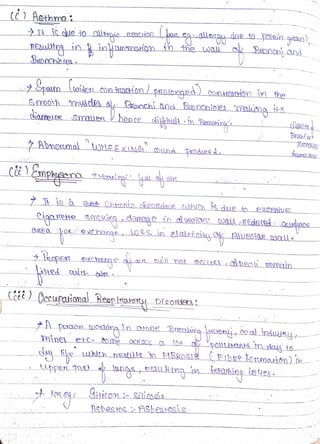 (i) Asthma:
→ It is due to allergic reaction (for eg. allergy due to pollen grain),
resulting in inflammation in the wall of Bronchi and
Bronchioles.
→ Spasm (sudden contraction / prolonged) contraction in the
smooth muscles of Bronchi and Bronchioles making its
diameter smaller hence difficult in Breathing.
→ Abnormal "WHEEZING" sound produced.
(ii) Emphysema → Meaning: full of air
→ It is a chronic disorder which is due to excessive
cigarette smoking, damage in alveolar wall, reduces surface
area for exchange, loss in elasticity of Alveolar wall.
→ Proper exchange of air can not occurs, alveoli remain
filled with air.
(iii) Occupational Respiratory Disorders:
→ A person working in stone Breaking factory, coal industry,
mines etc. come across a lot of pollutants in day to
day life which results in FIBROSIS (FIBRE Formation) in
upper part of lungs, resulting in breathing issues.
→ For eg: Silicon :- Silicosis
Asbestos :- Asbestosis